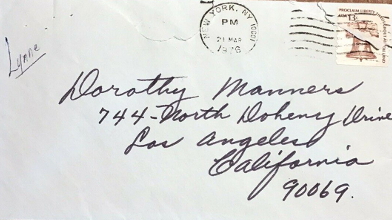 NEW YORK, NY
PM
21 MAR
1976
Lynne
Dorothy Manners
744-North Doheny Drive
Los Angeles
California
90069.